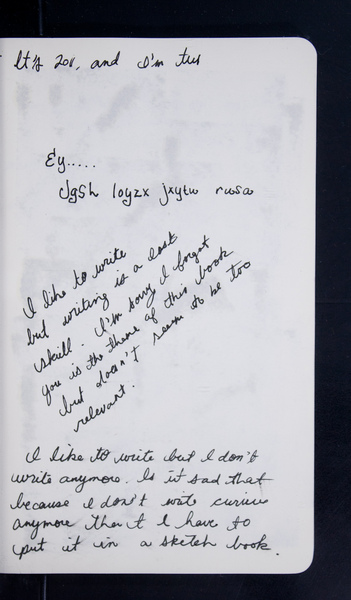 It's 2011, and I'm
Ey.....
loyzx jxytw
I like to write
but writing is a lost
skill. I'm sorry I forgot
you is the theme of this book
but doesn't seem to be too
relevant.
I like to write but I don't
write anymore. Is it sad that
because I don't write cursive
anymore that I have to
put it in a sketch book.